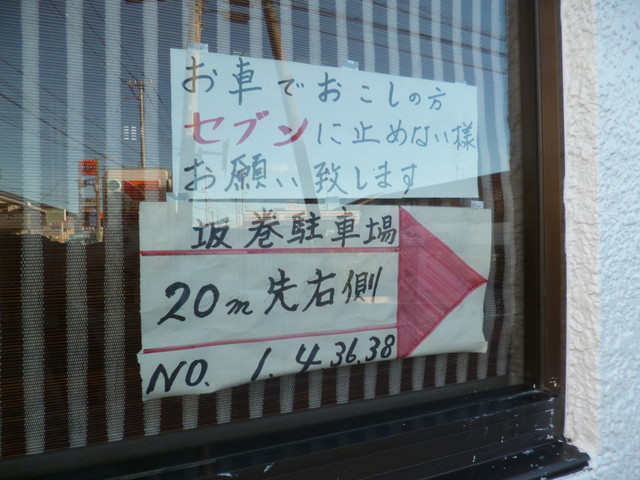 お車でおこしの方
セブンに止めない様
お願い致します
坂巻駐車場
20m先右側
NO. 1. 4 36.38